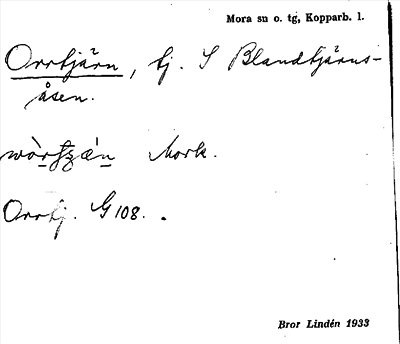 Mora sn o. tg, Kopparb. l.
Orrtjärn, tj. S Blandtjärns-
åsen.
Mork.
Orrtj. G 108.
Bror Lindén 1933